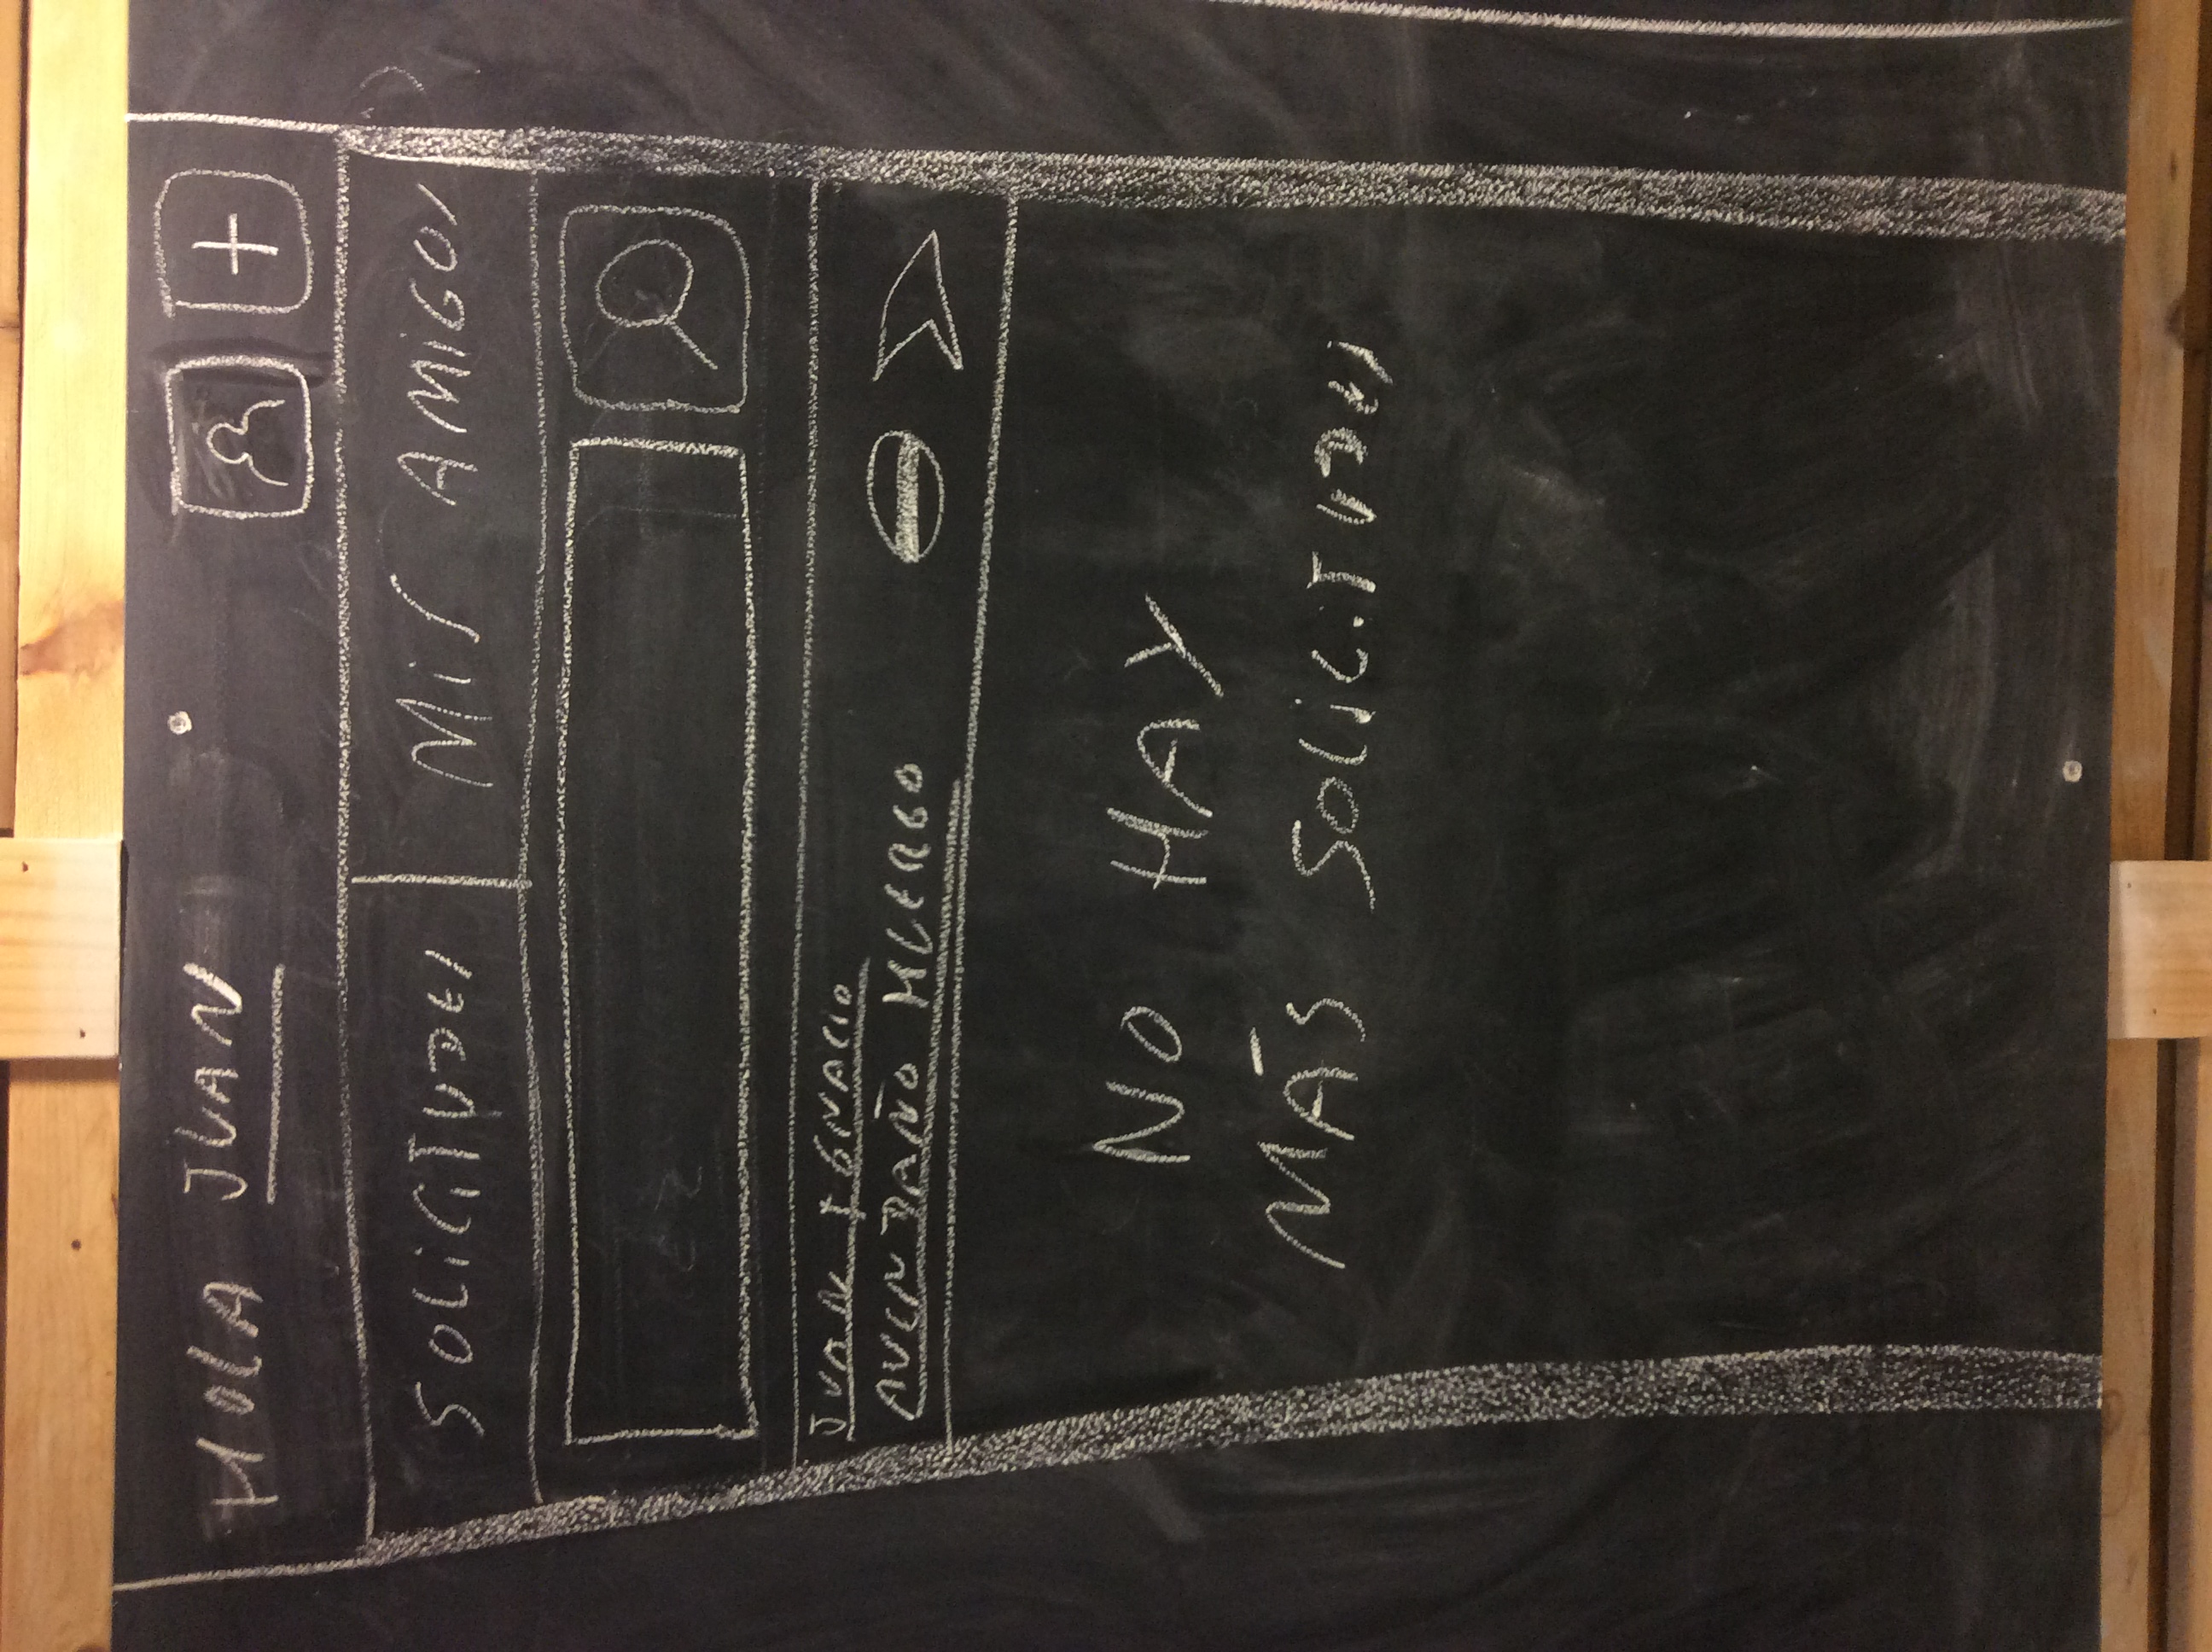 HOLA JUAN
SOLICITUDES
MIS AMIGOS
JUAN IGNACIO
AVENDAÑO HUERGO
NO HAY
MÁS SOLICITUDES